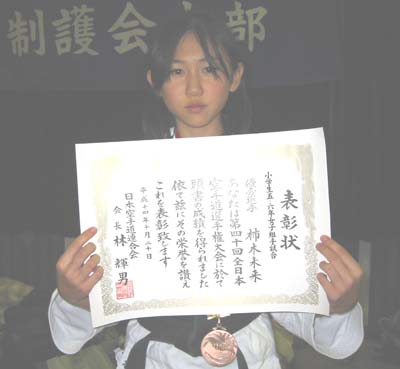 制護会本部
表彰状
小学生五・六年女子組手試合
優秀選手 柿木未来
あなたは第四十回全日本
空手道選手権大会に於て
頭書の成績を得られました
依て茲にその栄誉を讃え
これを表彰致します
平成十四年十月二十日
日本空手道連合会
会長 林輝男